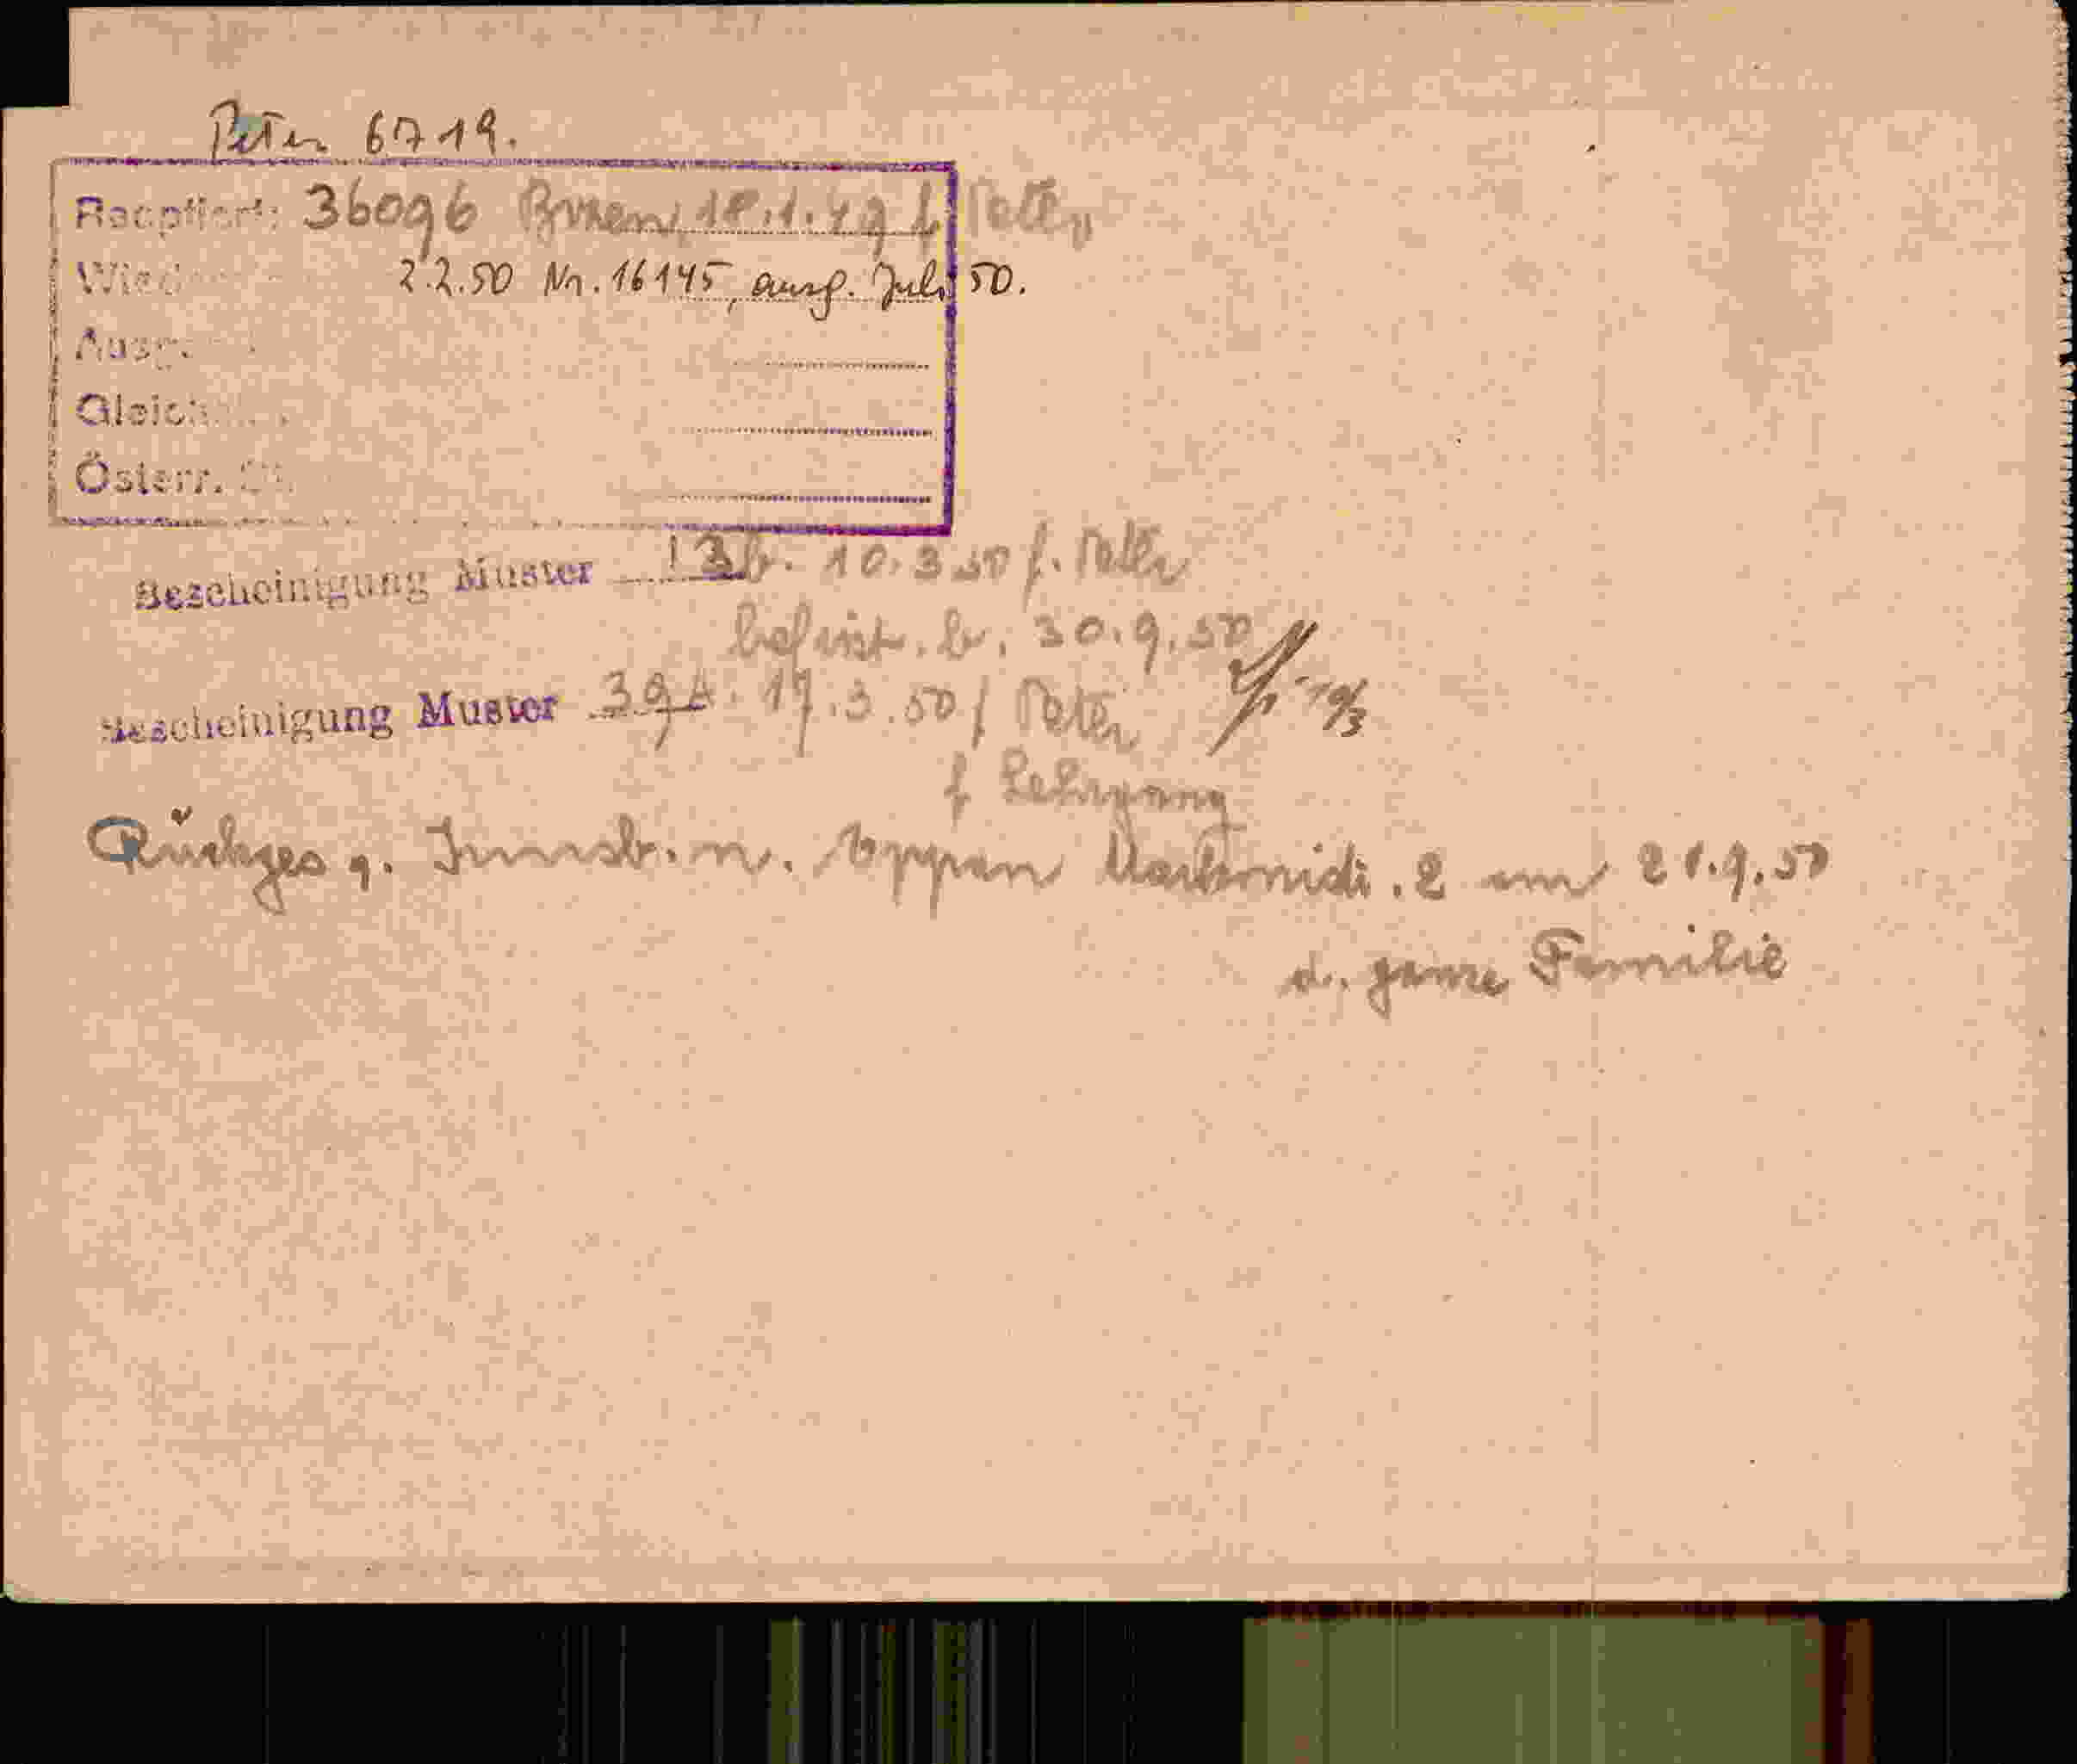 Peter 6719.
Reoptiert: 36096 Bozen, 18.1.49 f. Peter
2.2.50 Nr. 16145, ausg. Juli 50.
Ausg.
Gleich
Österr.
Bescheinigung Muster 13b. 10.3.50 f. Peter
befrist. b. 30.9.50
Bescheinigung Muster 39A. 17.3.50 f Peter 19/3
f Lehrgang
Rückges g. Innsb. n. Eppan 2 am 21.9.50
d. ganze Familie